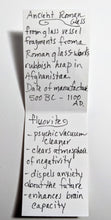 Ancient Roman
Glass
from glass vessel
fragments from a
Roman glass works
rubbish heap in
Afghanistan.
Date of manufacture
500 BC - 1100
AD.
fluorite
- psychic vacuum
cleaner
- clears atmosphere
of negativity
- dispels anxiety
about the future
- enhances brain
capacity